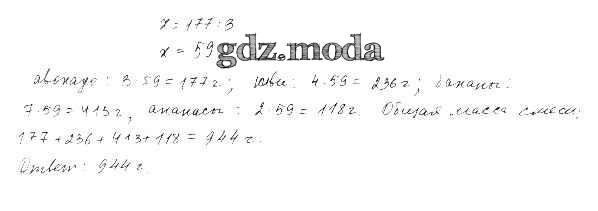 x = 177 : 3
x = 59
gdz.moda
авокадо: 3·59 = 177г; киви: 4·59 = 236г; бананы:
7·59 = 413г, ананасы: 2·59 = 118г. Общая масса смеси:
177 + 236 + 413 + 118 = 944 г.
Ответ: 944 г.